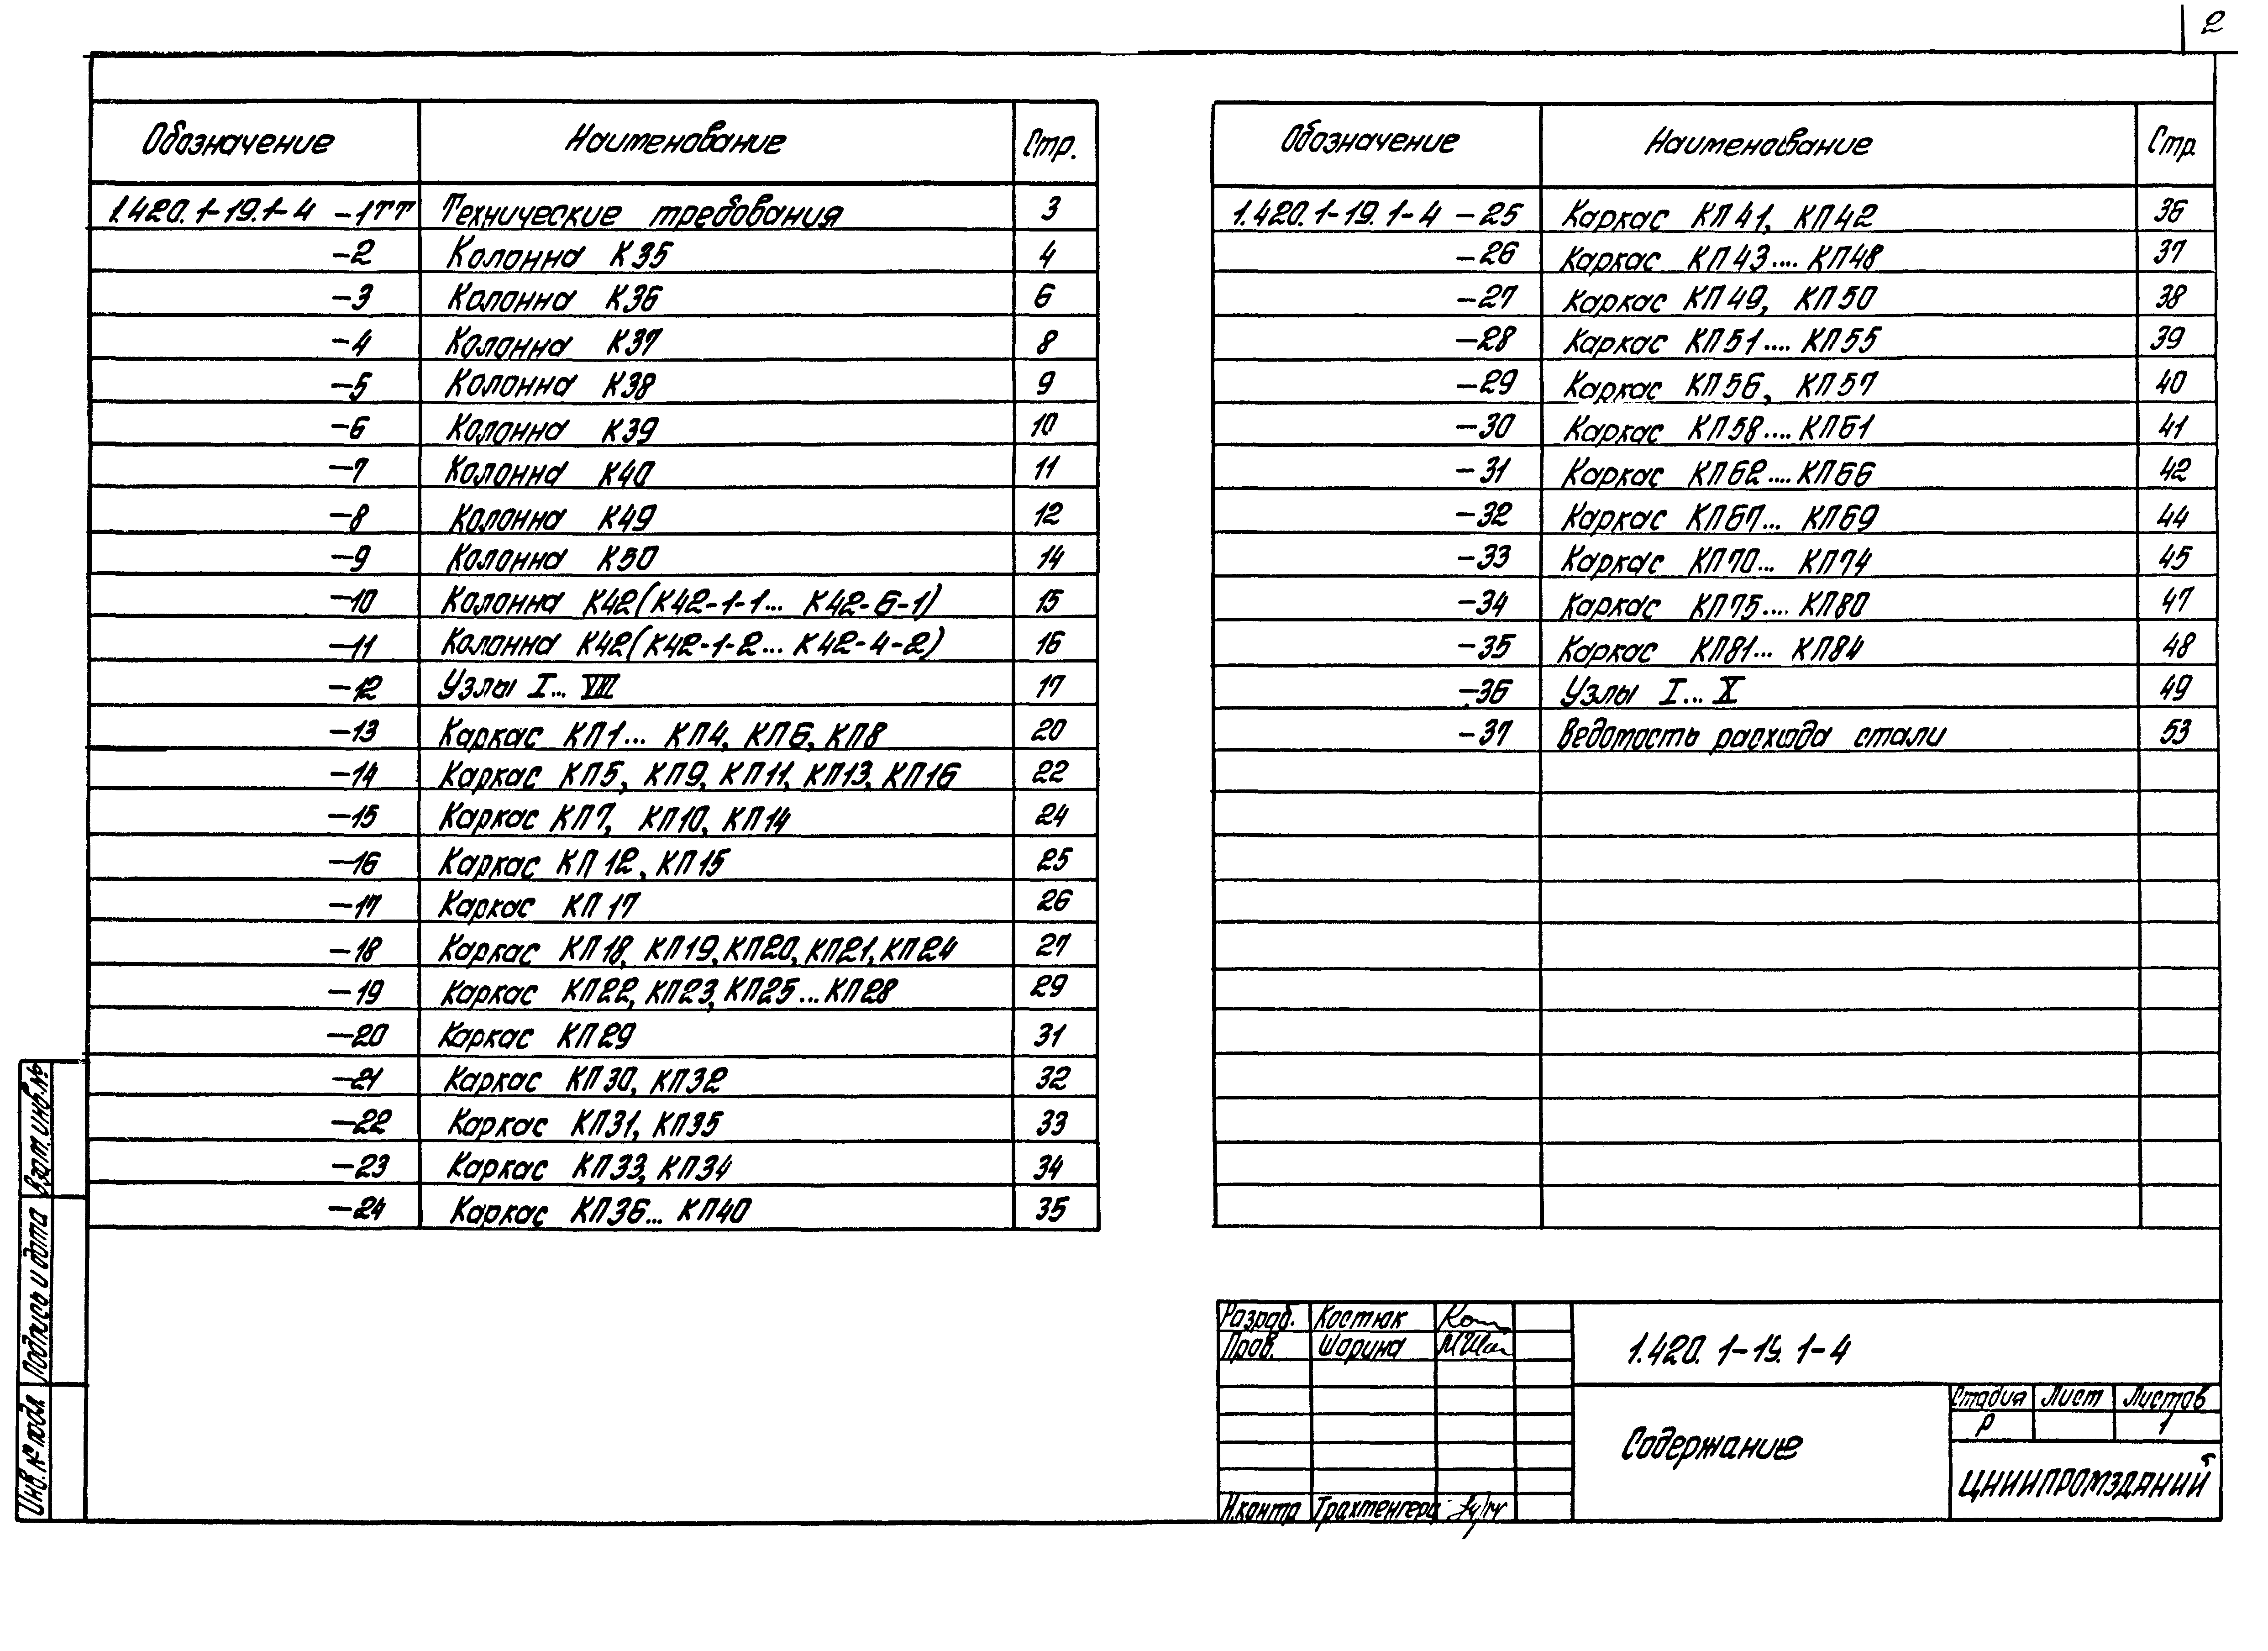 2
Обозначение Наименование Стр.
1.420.1-19.1-4 -1ТТ Технические требования 3
-2 Колонна К35 4
-3 Колонна К36 6
-4 Колонна К37 8
-5 Колонна К38 9
-6 Колонна К39 10
-7 Колонна К40 11
-8 Колонна К49 12
-9 Колонна К50 14
-10 Колонна К42(К42-1-1... К42-6-1) 15
-11 Колонна К42(К42-1-2... К42-4-2) 16
-12 Узлы I... VIII 17
-13 Каркас КП1... КП4, КП6, КП8 20
-14 Каркас КП5, КП9, КП11, КП13, КП16 22
-15 Каркас КП7, КП10, КП14 24
-16 Каркас КП12, КП15 25
-17 Каркас КП17 26
-18 Каркас КП18, КП19, КП20, КП21, КП24 27
-19 Каркас КП22, КП23, КП25...КП28 29
-20 Каркас КП29 31
-21 Каркас КП30, КП32 32
-22 Каркас КП31, КП35 33
-23 Каркас КП33, КП34 34
-24 Каркас КП36... КП40 35
Обозначение Наименование Стр.
1.420.1-19.1-4 -25 Каркас КП41, КП42 36
-26 Каркас КП43.... КП48 37
-27 Каркас КП49, КП50 38
-28 Каркас КП51.... КП55 39
-29 Каркас КП56, КП57 40
-30 Каркас КП58.... КП61 41
-31 Каркас КП62.... КП66 42
-32 Каркас КП67... КП69 44
-33 Каркас КП70... КП74 45
-34 Каркас КП75.... КП80 47
-35 Каркас КП81... КП84 48
-36 Узлы I... X 49
-37 Ведомость расхода стали 53
Взам. инв.№
Подпись и дата
Инв.№ подл
Разраб. Костюк
Пров. Шорина
Н.контр Трахтенгерц
1.420.1-19.1-4
Содержание
Стадия Лист Листов
Р 1
ЦНИИПРОМЗДАНИЙ